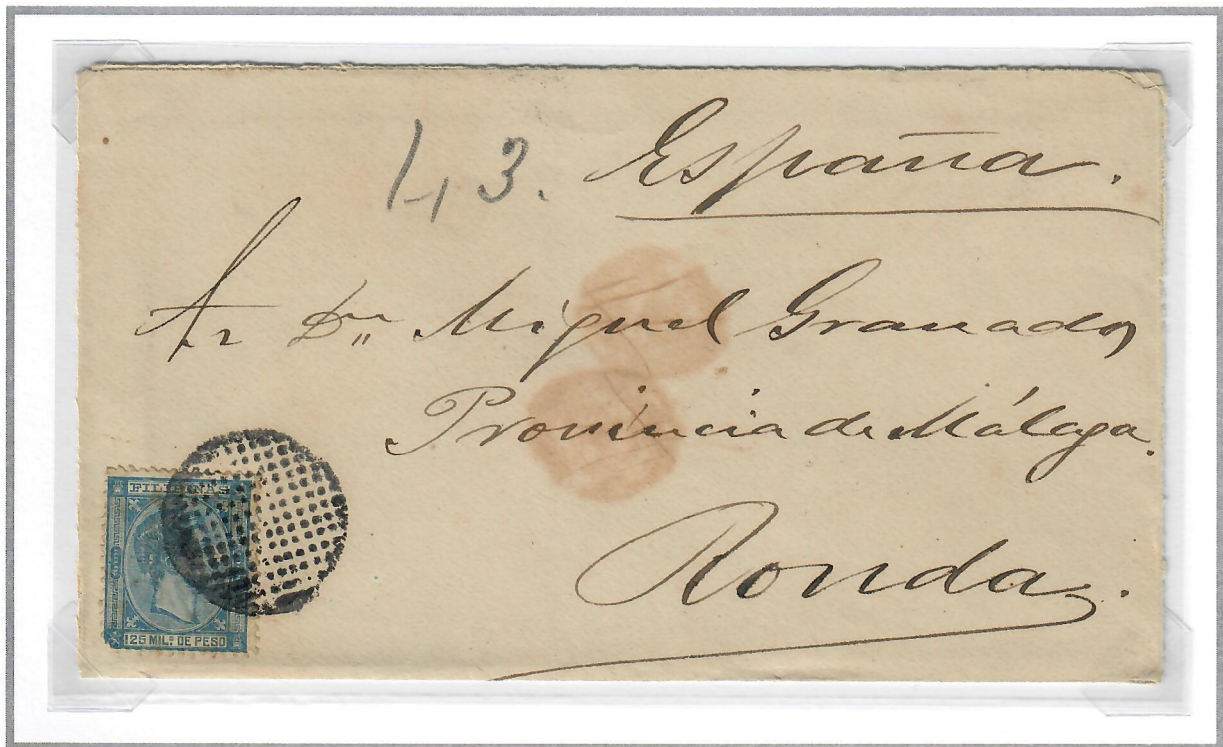 España.
43.
Ar Dn Miguel Granados
Provincia de Málaga.
Ronda.
FILIPINAS
125 MILS. DE PESO